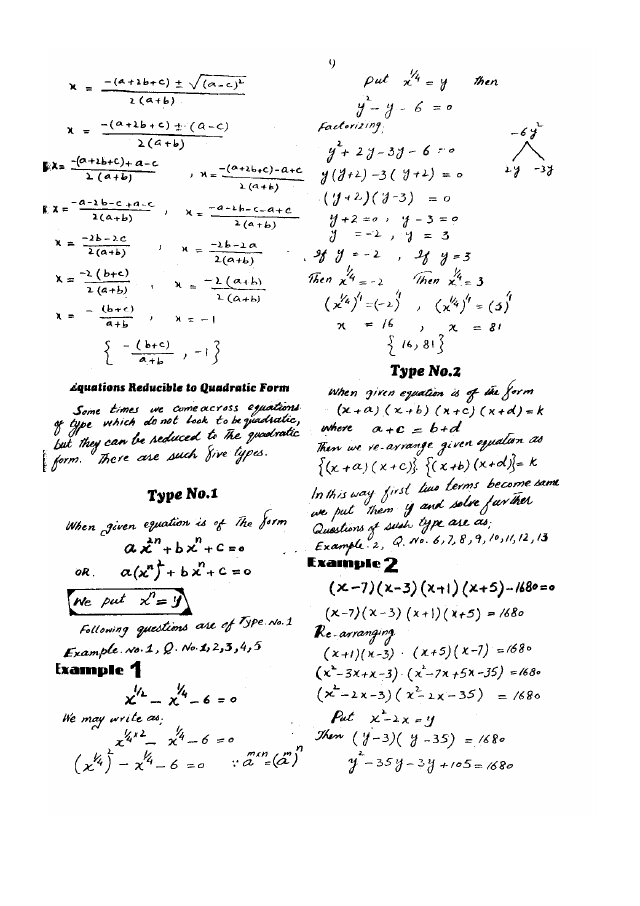 9
x = -(a+2b+c) ± √(a-c)² / 2(a+b)
x = -(a+2b+c) ± (a-c) / 2(a+b)
x = -(a+2b+c)+a-c / 2(a+b) , x = -(a+2b+c)-a+c / 2(a+b)
x = -a-2b-c+a-c / 2(a+b) , x = -a-2b-c-a+c / 2(a+b)
x = -2b-2c / 2(a+b) , x = -2b-2a / 2(a+b)
x = -2(b+c) / 2(a+b) , x = -2(a+b) / 2(a+b)
x = - (b+c) / a+b , x = -1
{ -(b+c) / a+b , -1 }
Equations Reducible to Quadratic Form
Some times we come across equations
of type which do not look to be quadratic,
but they can be reduced to the quadratic
form. There are such five types.
Type No.1
When given equation is of the form
ax²ⁿ + bxⁿ + c = 0
OR. a(xⁿ)² + bxⁿ + c = 0
We put xⁿ = y
Following questions are of Type No.1
Example No.1, Q. No.1,2,3,4,5
Example 1
x^1/2 - x^1/4 - 6 = 0
We may write as;
x^1/4×2 - x^1/4 - 6 = 0
(x^1/4)² - x^1/4 - 6 = 0 ∵ a^m×n = (a^m)^n
Put x^1/4 = y then
y² - y - 6 = 0
Factorizing;
-6y²
2y -3y
y² + 2y - 3y - 6 = 0
y(y+2) -3(y+2) = 0
(y+2)(y-3) = 0
y+2=0 , y-3=0
y = -2 , y = 3
If y = -2 , If y = 3
Then x^1/4 = -2 Then x^1/4 = 3
(x^1/4)^4 = (-2)^4 , (x^1/4)^4 = (3)^4
x = 16 , x = 81
{ 16, 81 }
Type No.2
When given equation is of the form
(x+a)(x+b)(x+c)(x+d) = k
where a+c = b+d
Then we re-arrange given equation as
{(x+a)(x+c)}. {(x+b)(x+d)} = k
In this way first two terms become same
we put them y and solve further
Questions of such type are as;
Example. 2, Q. No. 6,7,8,9,10,11,12,13
Example 2
(x-7)(x-3)(x+1)(x+5)-1680=0
(x-7)(x-3)(x+1)(x+5) = 1680
Re-arranging
(x+1)(x-3) · (x+5)(x-7) = 1680
(x²-3x+x-3)·(x²-7x+5x-35) = 1680
(x²-2x-3)(x²-2x-35) = 1680
Put x²-2x = y
Then (y-3)(y-35) = 1680
y² - 35y - 3y + 105 = 1680